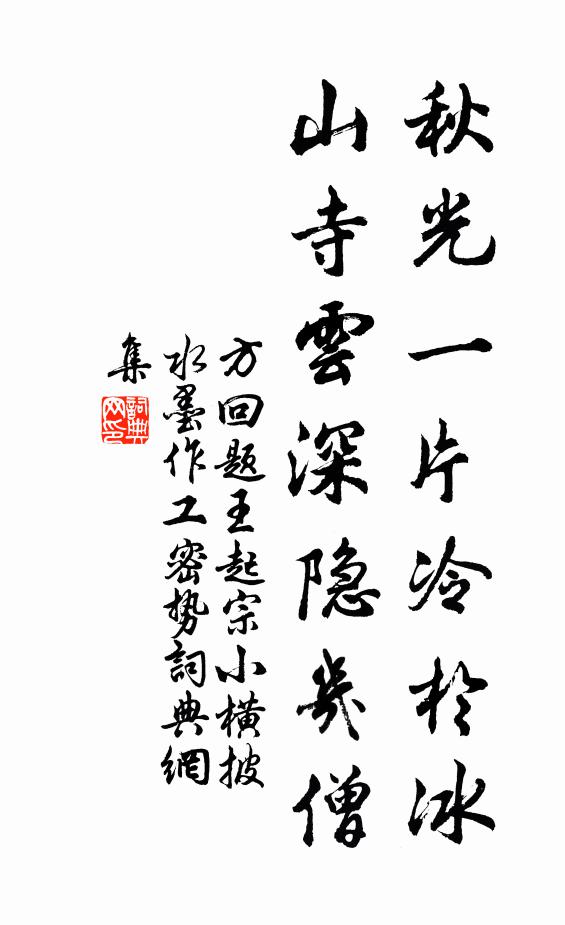 秋光一片冷於冰
山寺雲深隐幾僧
方回题王起宗小横披
水墨作工密势詞典網
集
詞典网印